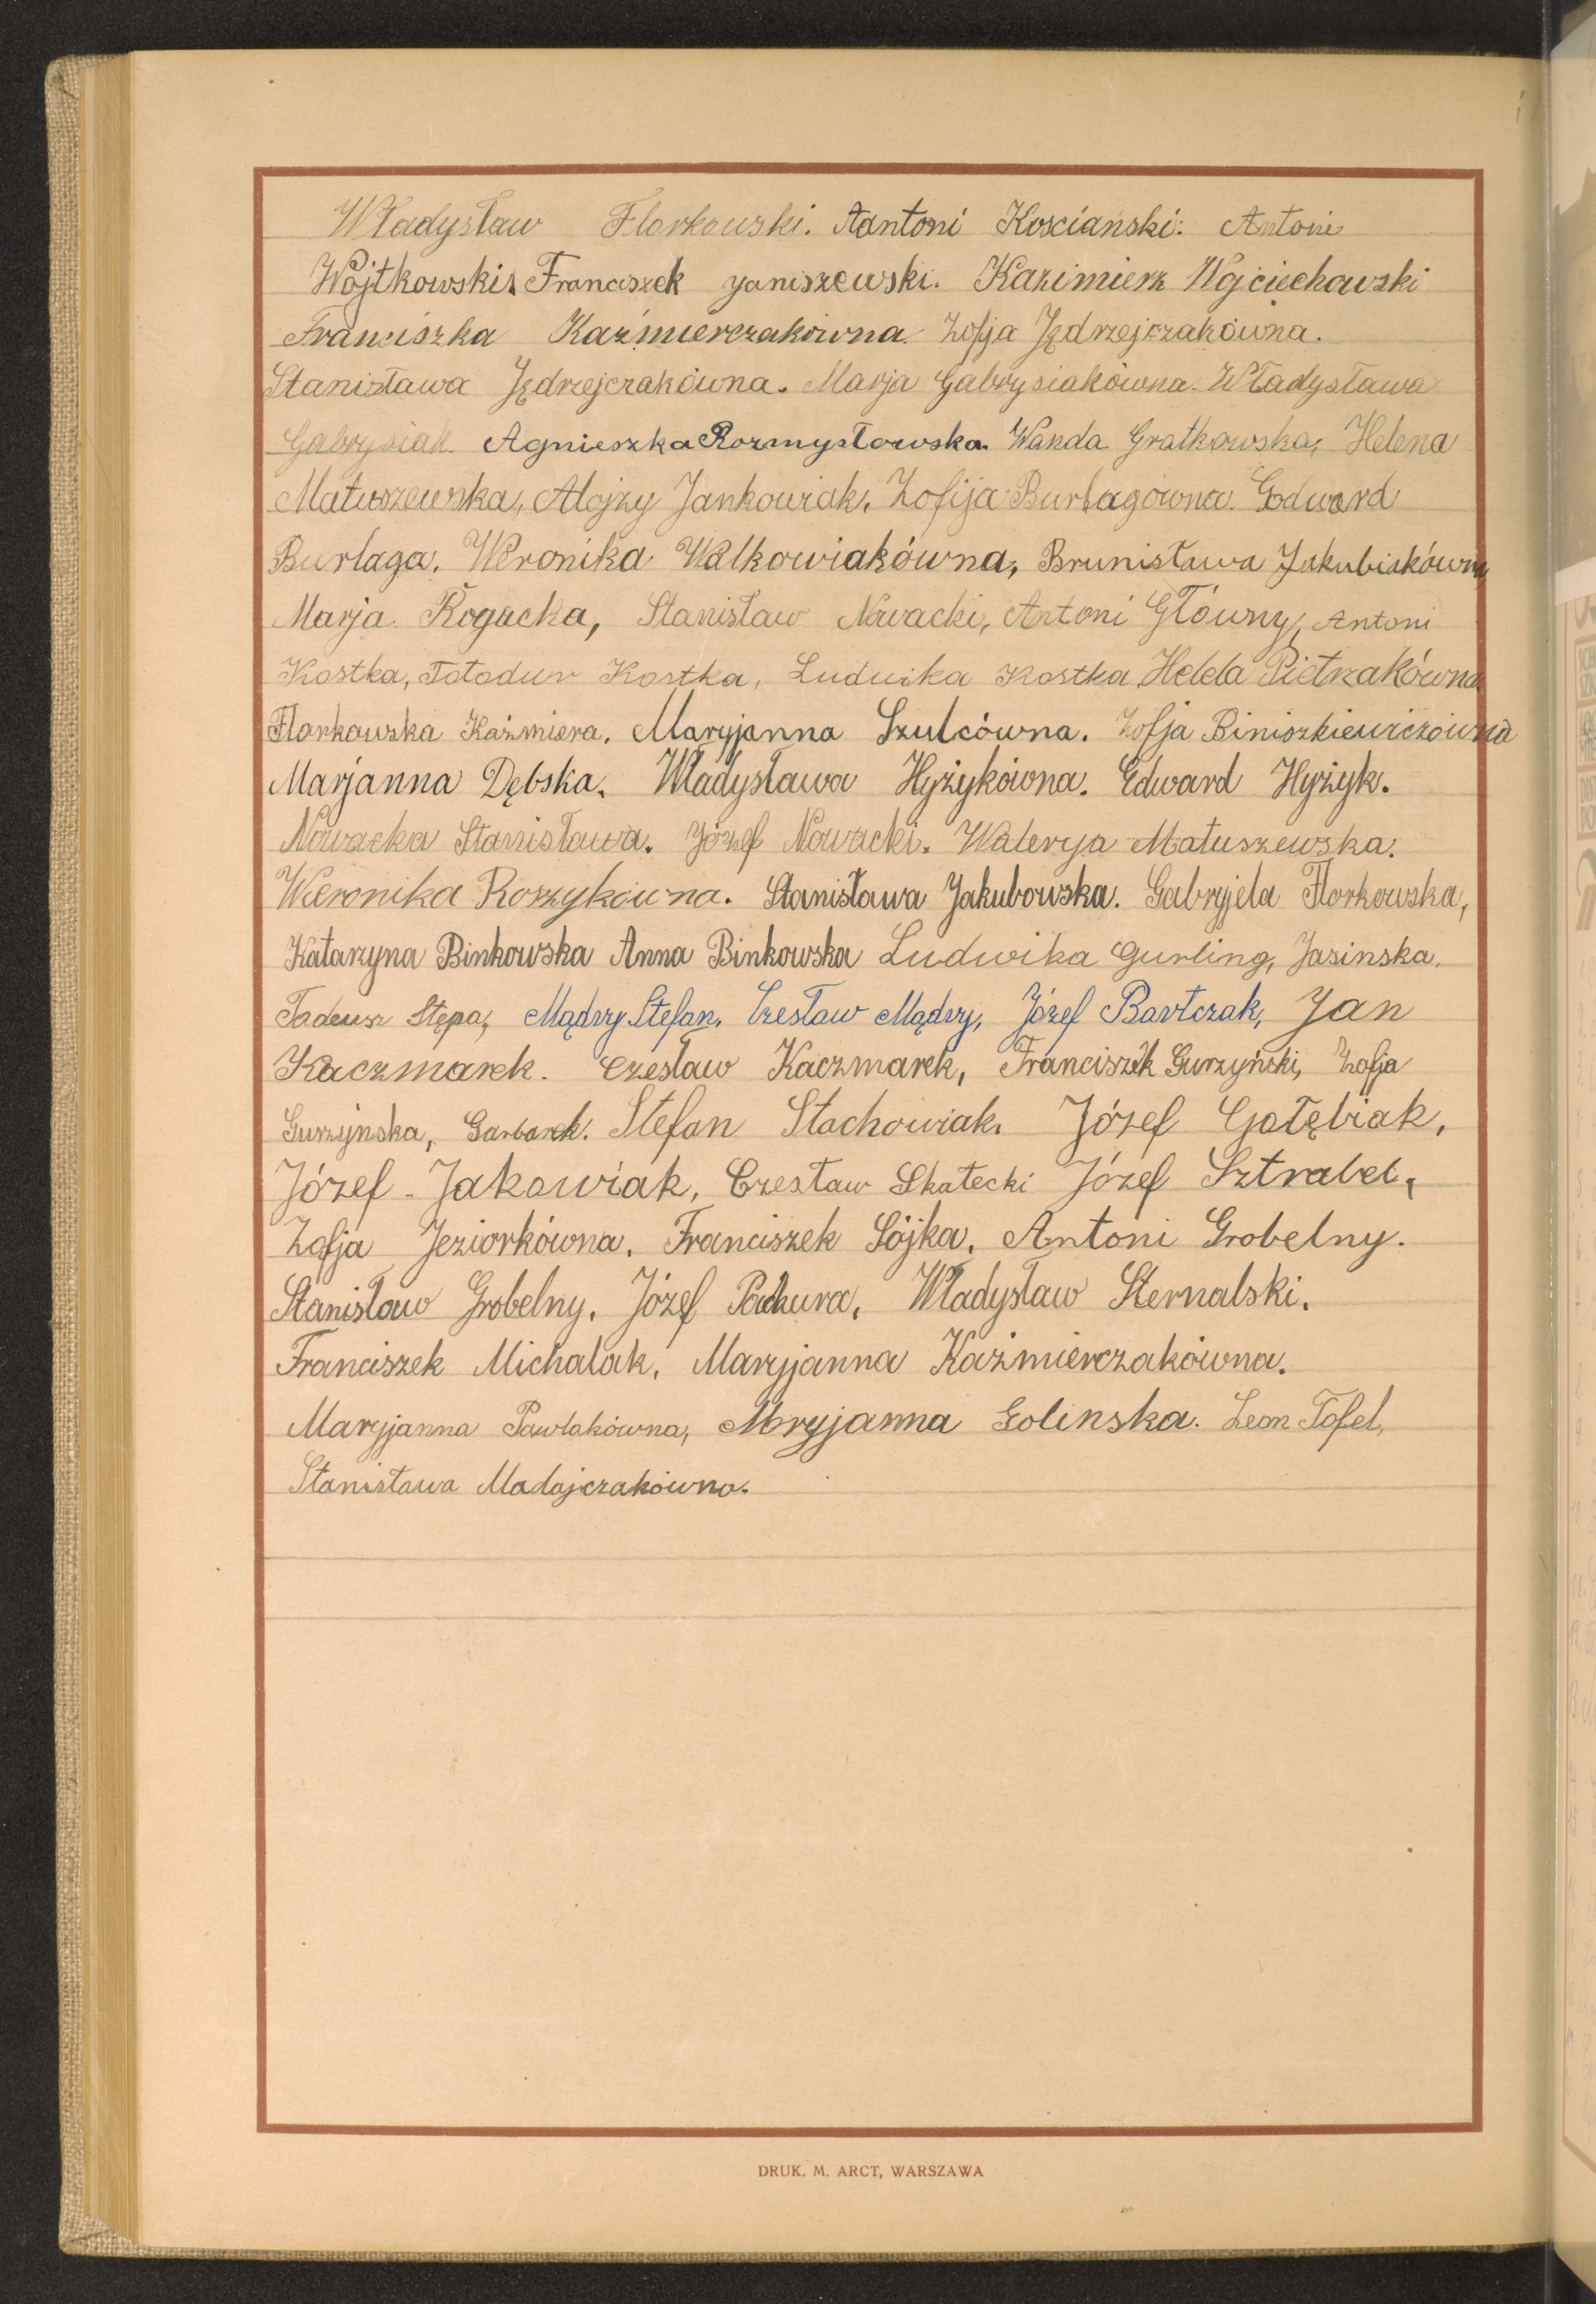 Władysław Florkowski. Aantoni Kościański. Antoni
Wojtkowski. Franciszek yaniszewski. Kazimierz Wojciechowski
Franciszka Kaźmierczakówna. Zofja Jędrzejczakówna.
Stanisława Jędrzejczakówna. Marja Gabrysiakówna. Władysława
Gabrysiak. Agnieszka Rozmysłowska. Wanda Gratkowska, Helena
Matuszewska, Alojzy Jankowiak. Zofija Burlagówna. Edward
Burlaga. Weronika Walkowiakówna, Brunisława Jakubiakówna
Marja Rogacka, Stanisław Nowacki, Antoni Główny, Antoni
Kostka, Kostka, Ludwika Kostka, Helela Pietrzakówna
Florkowska Kaźmiera. Maryjanna Szulcówna. Zofja Biniszkiewiczówna
Marjanna Dębska. Władysława Hyżykówna. Edward Hyżyk.
Nowacka Stanisława. Józef Nowacki. Walerya Matuszewska.
Weronika Roszykówna. Stanisława Jakubowska. Gabryjela Florkowska,
Katarzyna Binkowska Anna Binkowska Ludwika Gurling, Jasinska.
Tadeusz Stępa, Mądry Stefan, Czesław Mądry, Józef Bartczak, Jan
Kaczmarek. Czesław Kaczmarek, Franciszek Gurzyński, Zofja
Gurzyńska, Garbarek. Stefan Stachowiak. Józef Gołębiak.
Józef - Jakowiak, Czesław Skatecki Józef Sztrabel,
Zofja Jeziorkówna. Franciszek Sójka. Antoni Grobelny.
Stanisław Grobelny. Józef Pachura. Władysław Sternalski.
Franciszek Michalak. Maryjanna Kaźmierczakówna.
Maryjanna Pawlakówna, Mryjanna Golinska. Leon Tofel,
Stanisława Madajczakówna.
DRUK. M. ARCT, WARSZAWA